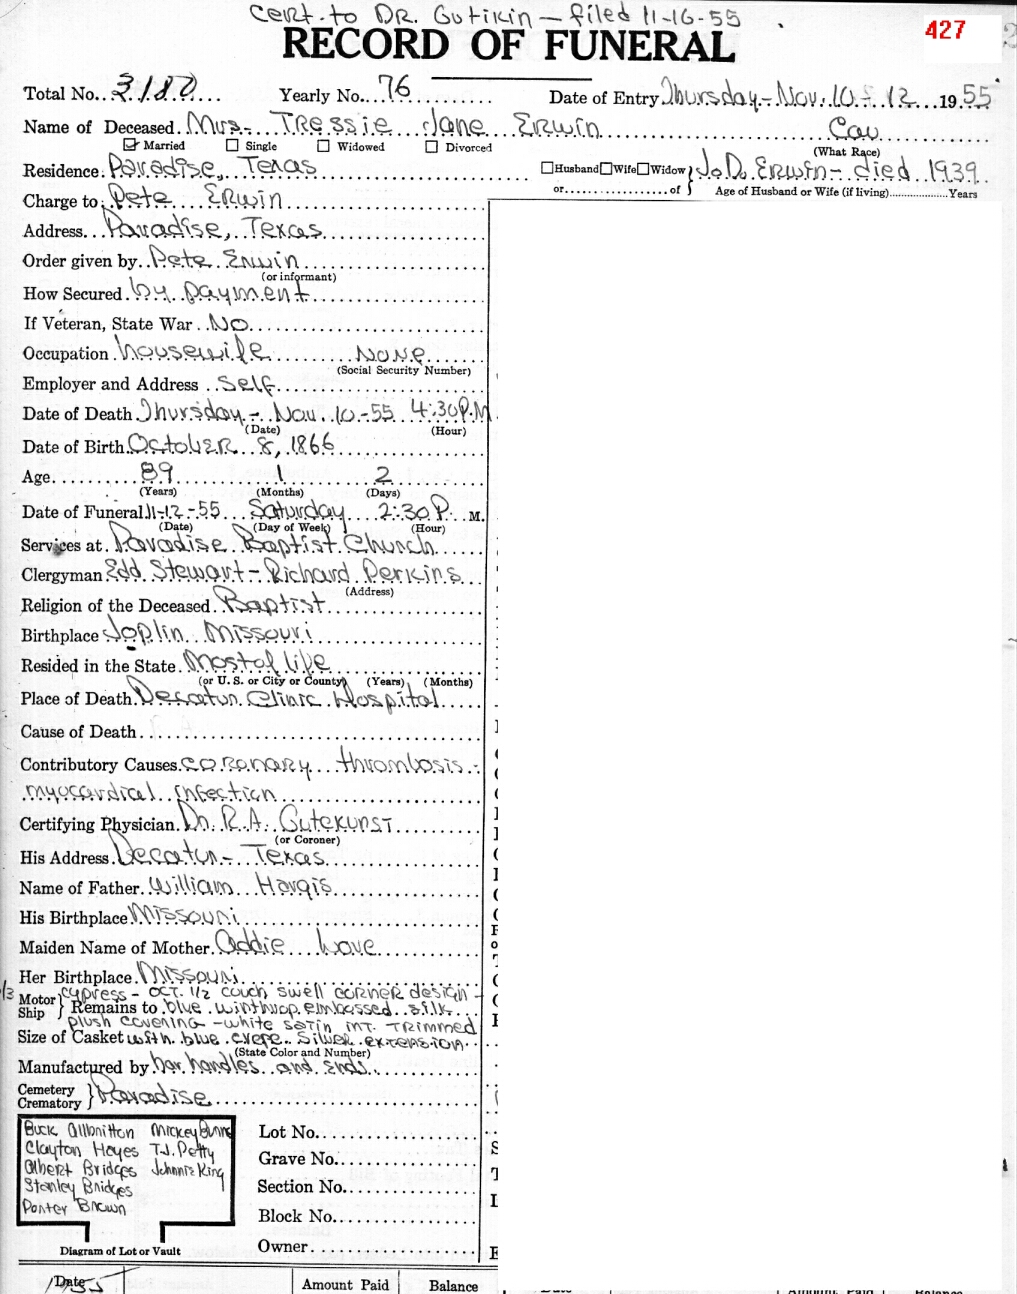 Cert. to DR. Gutikin — filed 11-16-55
427
RECORD OF FUNERAL
Total No. 3180 Yearly No. 76 Date of Entry Thursday - Nov. 10 - 12 1955
Name of Deceased Mrs. Tressie Jane Erwin Cau
Married Single Widowed Divorced (What Race)
Residence Paradise, Texas Husband Wife Widow } J.D. Erwin - died 1939
or of Age of Husband or Wife (if living) Years
Charge to Pete Erwin
Address Paradise, Texas
Order given by Pete Erwin
(or informant)
How Secured by payment
If Veteran, State War No
Occupation housewife None
(Social Security Number)
Employer and Address Self
Date of Death Thursday - Nov. 10 -55 4:30 P.M
(Date) (Hour)
Date of Birth October 8, 1866
Age 89 1 2
(Years) (Months) (Days)
Date of Funeral 11-12-55 Saturday 2:30 P. M.
(Date) (Day of Week) (Hour)
Services at Paradise Baptist Church
Clergyman Edd Stewart - Richard Perkins
(Address)
Religion of the Deceased Baptist
Birthplace Joplin Missouri
Resided in the State Most of life
(or U. S. or City or County) (Years) (Months)
Place of Death Decatur Clinic Hospital
Cause of Death
Contributory Causes coronary thrombosis -
myocardical infection
Certifying Physician Dr. R.A. Gutekunst
(or Coroner)
His Address Decatur - Texas
Name of Father William Hargis
His Birthplace Missouri
Maiden Name of Mother Addie Love
Her Birthplace Missouri
Motor Ship } cypress - OCT. 1/2 couch swell corner design -
Remains to blue winthrop embossed silk
plush covering - white satin int. trimmed
Size of Casket with blue crepe silver extension
(State Color and Number)
Manufactured by bar handles and ends.
Cemetery Crematory } Paradise
Buck Allbritton Mickey Dunn
Clayton Hayes T.J. Petty
Albert Bridges Johnnie King
Stanley Bridges
Porter Brown
Lot No.
Grave No.
Section No.
Block No.
Owner
Diagram of Lot or Vault
Date Amount Paid Balance
1955